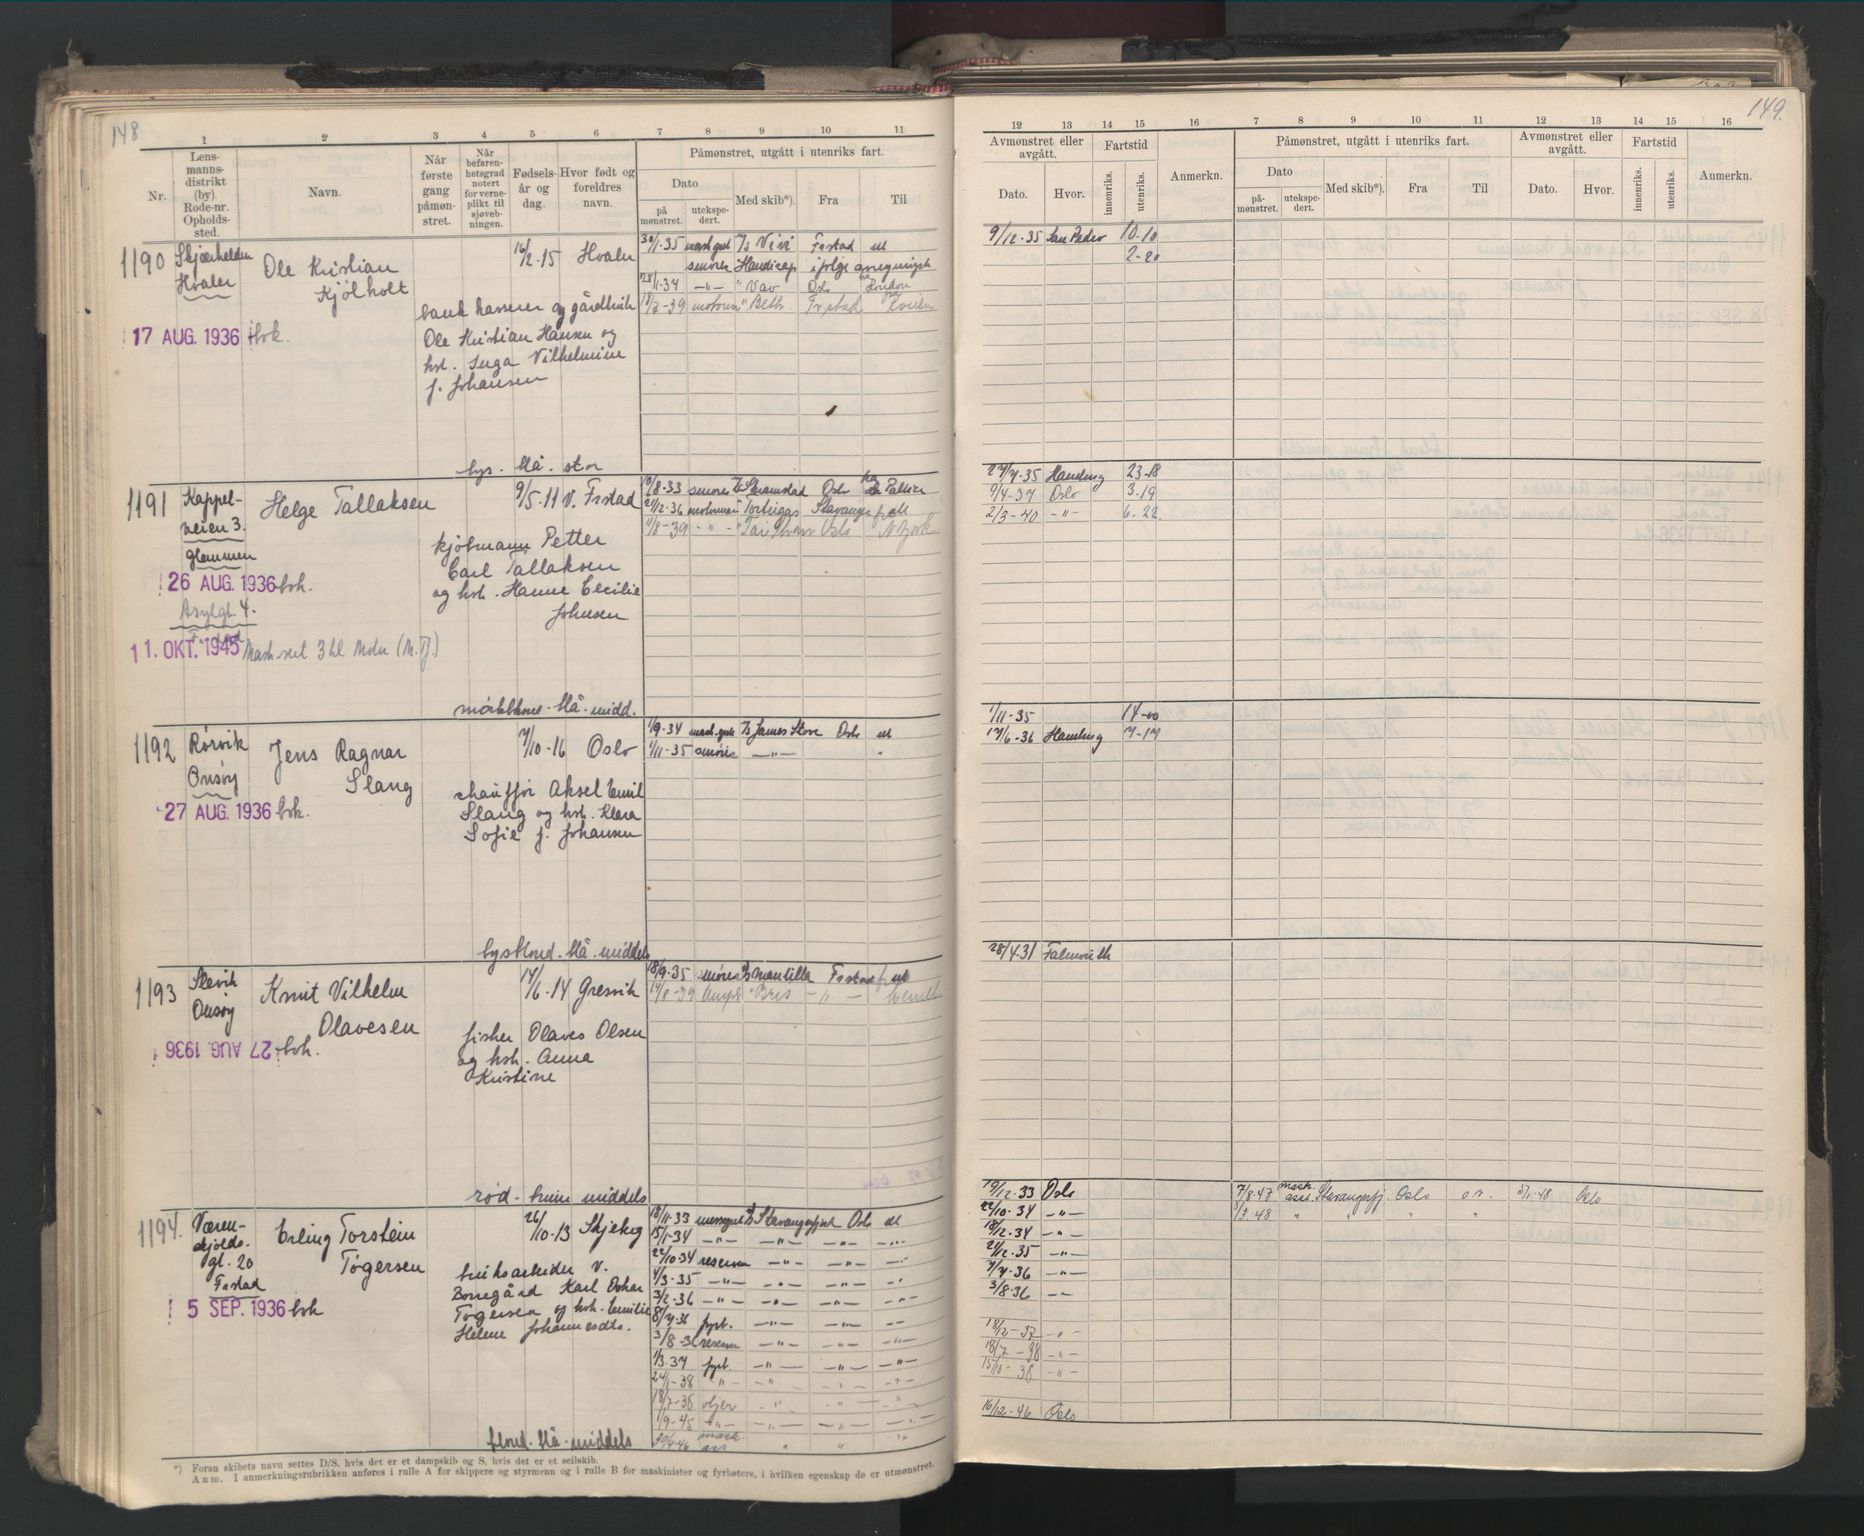 148
1 2 3 4 5 6 7 8 9 10 11
Nr.
Lens-
manns-
distrikt
(by).
Rode-nr.
Opholds-
sted.
Navn.
Når
første
gang
påmøn-
stret.
Når
befaren-
hetsgrad
notert
for verne-
plikt til
sjøveb-
ningen.
Fødsels-
år og
dag.
Hvor født og
foreldres
navn.
Påmønstret, utgått i utenriks fart.
Dato
på
mønstret.
utekspe-
dert.
Med skib*).
Fra
Til
1190 Skjærhalden
Hvaler
Ole Kristian
Kjølholt
16/2-15 Hvaler
17 AUG. 1936 bok.
bank kasserer og gårdbruk
Ole Kristian Hansen og
hst. Inga Vilhelmine
f. Johansen
lys. blå. stor
30/1-35 mask.gut T/s Vivi Frstad ut
smører " Handicap ifølge
28/1-37 -"- " Vav Oslo London
18/7-39 motorm " Beth. Frstad
1191 Kappel-
veien 3.
Glemmen
Helge Tallaksen
9/5-11 V. Frstad
26 AUG. 1936 boh.
Asylgt. 4.
Frstad
11. OKT. 1945 Mask-sert 3 kl Motor (M.T.)
kjøbmann Petter
Carl Tallaksen
og hst. Hanne Cecilie
Johnsen
mørkblond. blå. midd.
10/8-33 smører Oslo
21/12-36 motorman Torbugas Stavanger f. alt
11/8-39 -"- Oslo N York
1192 Rørvik
Onsøy
Jens Ragnar
Slang
7/10-16 Oslo
27 AUG. 1936 bok.
chauffør Aksel Emil
Slang og hst. Klara
Sofie f. Johansen
lysblond. blå. middels
1/9-34 mask.gut T/s James Stove Oslo ut
1/11-35 smører -"- "
1193 Slevik
Onsøy
Knut Vilhelm
Olavesen
17/6-14 Gresvik
27 AUG 1936 boh.
fisker Olaves Olsen
og hst. Anna
Kristine
rød. brun middels
18/9-35 smører Mantilla Frstad f. ut
14/8-39 " Bris -"-
1194. Væren-
skjolds.
gt. 20
Frstad
Erling Torstein
Tøgersen
26/10-13 Skjeberg
5 SEP. 1936 boh
bruksarbeider v.
Borregård Karl Oskar
Tøgersen og hst. Emilie
Helene Johannesdtr.
blond. blå. middels
18/11-33 messegut Stavangerfjord Oslo ut
15/1-34 -"- -"- -"- -"-
22/10-34 reserven -"- -"- -"-
4/3-35 -"- -"- -"- -"-
3/2-36 -"- -"- -"- -"-
8/4-36 fyrb. -"- -"- -"-
3/8-36 reserven -"- -"- -"-
1/3-37 fyrb. -"- -"- -"-
24/1-38 " -"- -"- -"-
18/7-38 oljer -"- -"- "
1/9-45 -"- -"- -"- -"-
30/4-46 mask.
ass " " "
*) Foran skibets navn settes D/S, hvis det er et dampskib og S, hvis det er et seilskib.
Anm. I anmerkningsrubrikken anføres i rulle A for skippere og styrmenn og i rulle B for maskinister og fyrbøtere, i hvilken egenskap de er utmønstret.
149.
12 13 14 15 16 7 8 9 10 11 12 13 14 15 16
Avmønstret eller
avgått.
Dato.
Hvor.
Fartstid
innenriks.
utenriks.
Anmerkn.
Påmønstret, utgått i utenriks fart.
Dato
på-
mønstret.
utekspe-
dert.
Med skib*).
Fra
Til
Avmønstret eller
avgått.
Dato.
Hvor.
Fartstid
innenriks.
utenriks.
Anmerkn.
9/12-35 San Pedro 10-10
2-20
27/7-35 Hamburg 23-18
9/4-37 Oslo 3.19
2/3-40 -"- 6.22
1/11-35 14-00
17/6-36 Hamburg 7-17
28/4-31 Falmouth
19/12-33 Oslo
22/10-34 -"-
18/12-34 -"-
21/12-35 -"-
7/4-36 -"-
3/8-36 -"-
18/12-37 -"-
18/7-38 -"-
15/10-38 -"-
16/12-46 Oslo
7/8-47 mask.
asst. Stavangerfj. Oslo o.r. 5/1-48 Oslo
3/3-48 " " " "